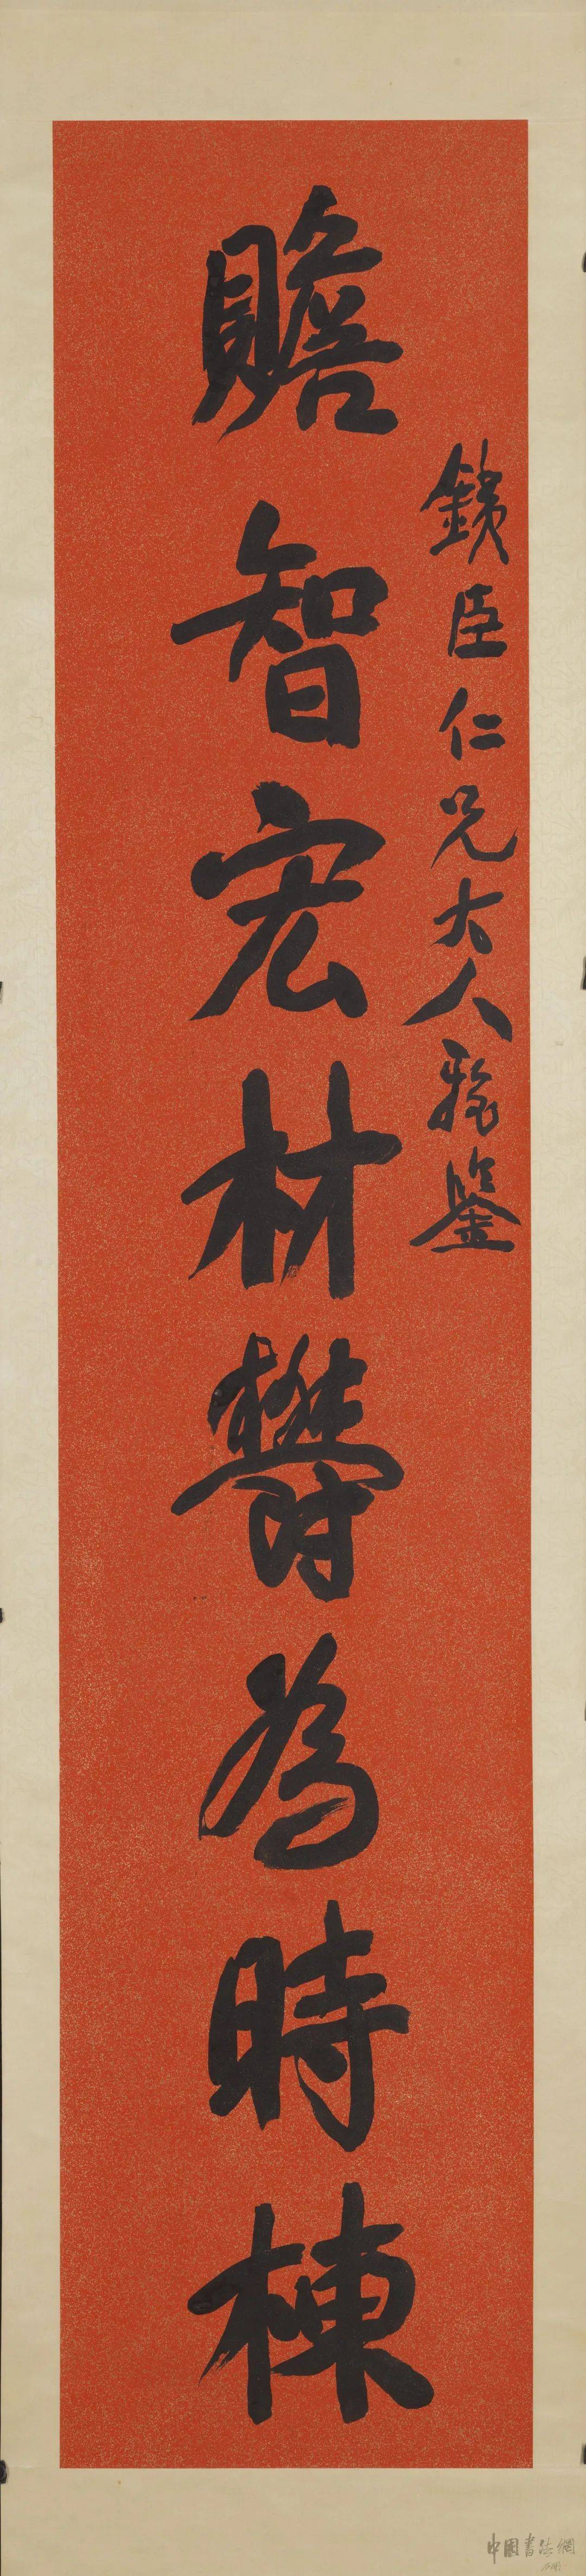 鐵臣仁兄大人雅鑒
贍智宏材鬱為時棟
中国書法網